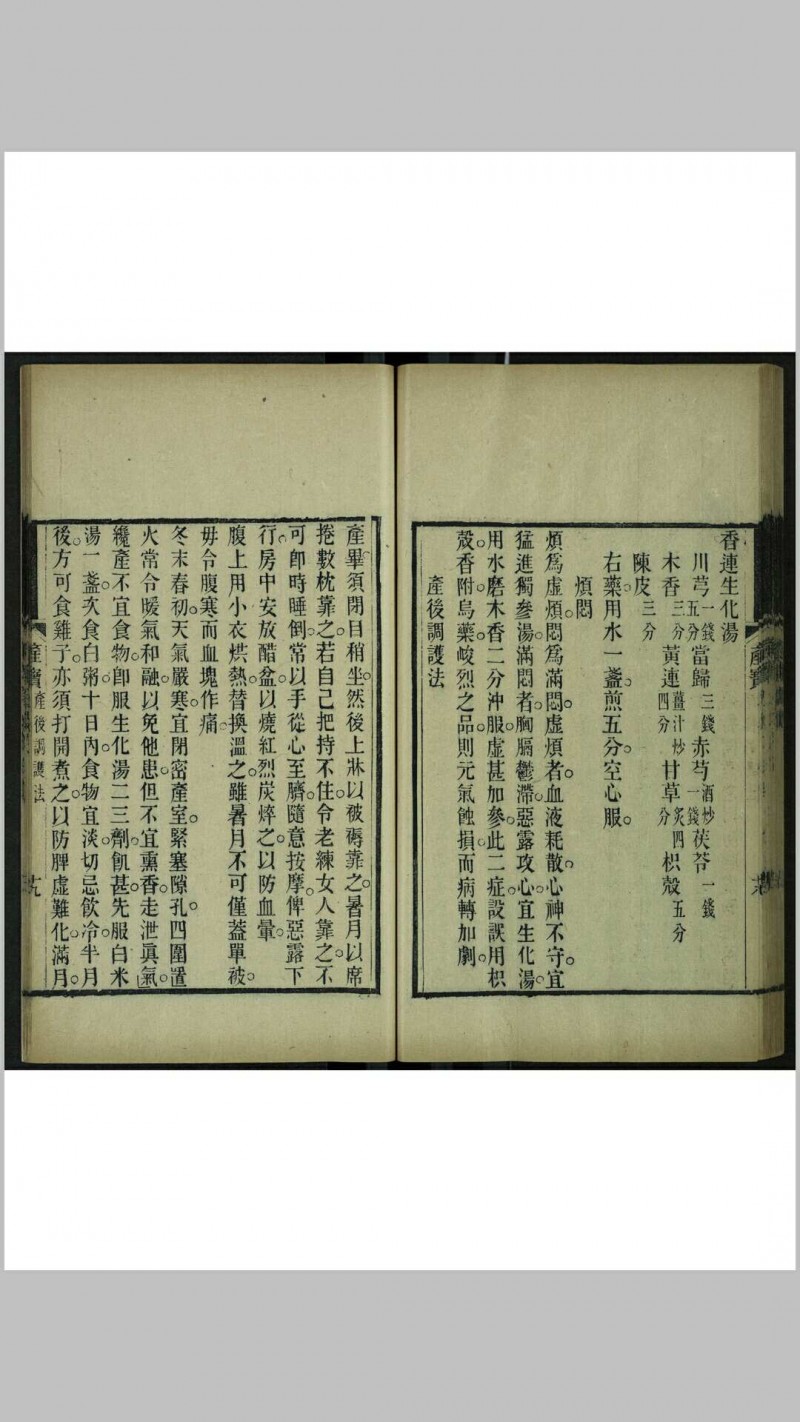 香連生化湯
川芎一錢五分當歸三錢赤芍酒炒一錢茯苓一錢
木香三分黃連薑汁炒四分甘草炙四分枳殼五分
陳皮三分
右藥用水一盞煎五分。空心服。
煩悶
煩爲虛煩。悶爲滿悶。虛煩者。血液耗散。心神不守。宜
猛進獨參湯。滿悶者。胸膈鬱滯。惡露攻心。宜生化湯。
用水磨木香二分沖服。虛甚加參。此二症。設誤用枳
殼。香附。烏藥。峻烈之品。則元氣蝕損。而病轉加劇。
產後調護法
產寶
產畢須閉目稍坐。然後上牀。以被褥靠之。暑月以席
捲數枕靠之。若自己把持不住。令老練女人靠之。不
可卽時睡倒。常以手從心至臍。隨意按摩。俾惡露下
行。房中安放醋盆。以燒紅烈炭焠之。以防血暈。
腹上用小衣烘熱。替換溫之。雖暑月不可僅蓋單被。
毋令腹寒而血塊作痛。
冬末春初。天氣嚴寒。宜閉密產室。緊塞隙孔。四圍置
火。常令暖氣和融。以免他患。但不宜熏香。走泄眞氣。
纔產不宜食物。卽服生化湯二三劑。飢甚。先服白米
湯一盞。次食白粥。十日內食物宜淡。切忌飲冷。半月
後方可食雞子。亦須打開煮之。以防脾虛難化。滿月。
產寶 產後調護法